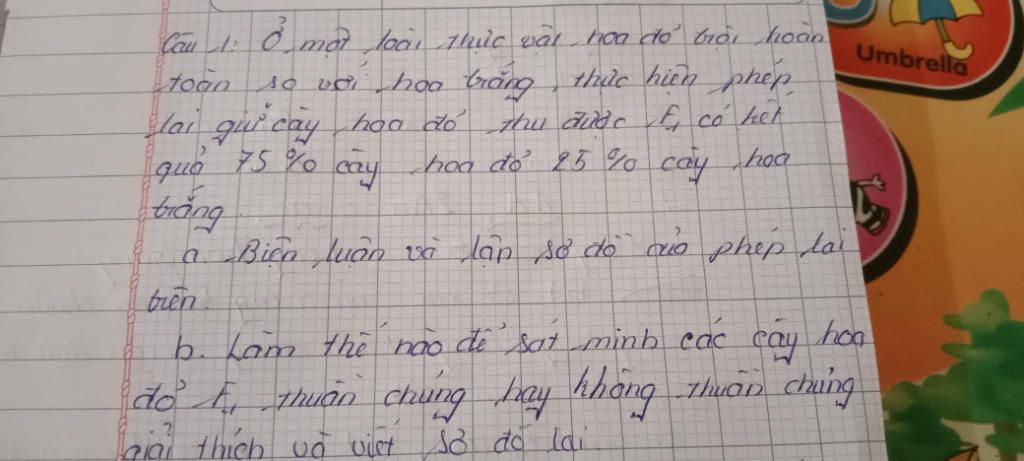 Câu 1: Ở một loài thực vật hoa đỏ trội hoàn
toàn so với hoa trắng, thực hiện phép
lai giữ cây hoa đỏ thu được F₁ có kết
quả 75 % cây hoa đỏ 25 % cây hoa
trắng
a. Biện luận và lận sơ đồ quả phép lai
trên.
b. Làm thế nào để sát minh các cây hoa
đỏ F₁ thuần chủng hay không thuần chủng
giải thích và viết sơ đồ lai
Umbrella